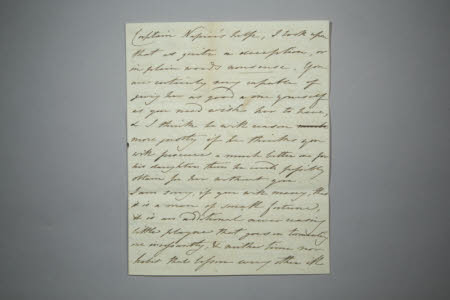 Captain Napier's helpe, I look upon
that as quite a deception, or
in plain words nonsense. You
are certainly very capable of
giving her as good a one yourself
as you need wish her to have,
& I think he will reason
more justly if he thinks you
will procure a much better one for
his daughter than he could possibly
obtain for her without you
I am sorry, if you ask many, that
it is a man of small fortune,
it is an additional never ceasing
little plague that goes on
incessantly, & neither time nor
habit that lessen every other ill